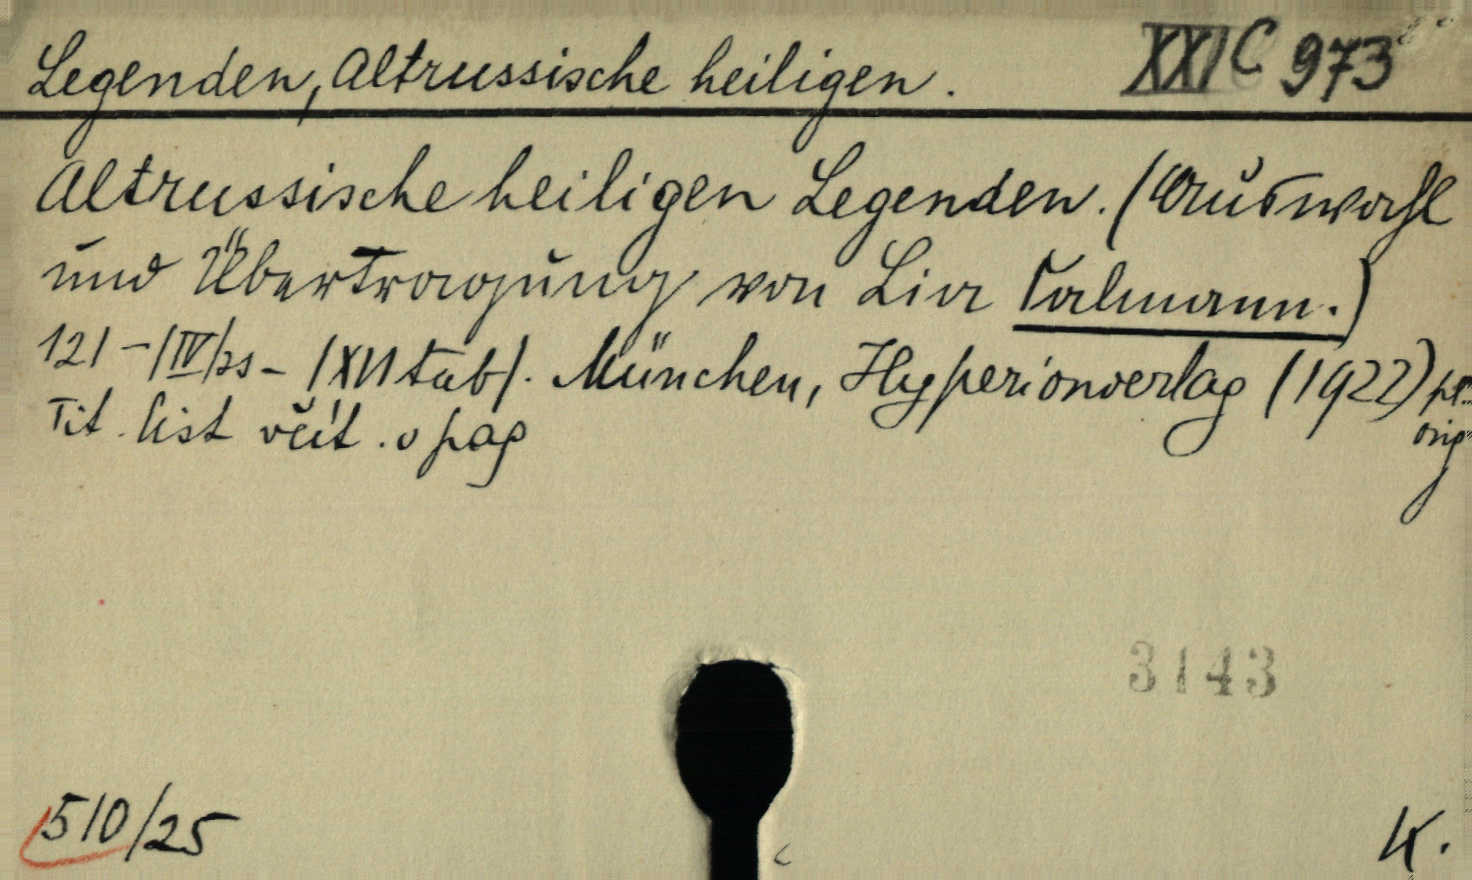 Legenden, Altrussische heiligen. XXI C 973
Altrussische heiligen Legenden. (Auswahl
und Übertragung von Lia Calmann.)
121 - /IV/ ss - /XII tab/. München, Hyperionverlag (1922) pl.
Tit. list včít. v pag orig
3143
510/25 K.